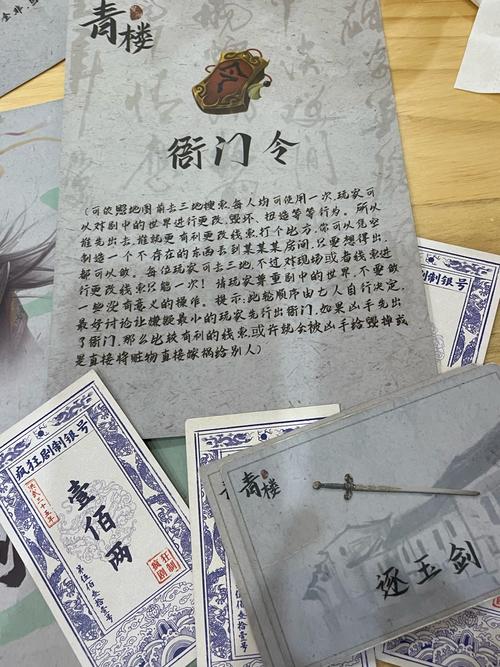 金非
青楼
令
衙门令
(可依照地图前去三地搜索,每人均可使用一次,玩家可
以对剧中的世界进行更改、毁坏、捏造等等行为。所以
谁先出去,谁就更有利更改线索,打个比方,你可以凭空
制造一个不存在的东西丢到某某某房间,只要想得出,
都可以做。每位玩家可去三地,不过对现场或者线索进
行更改线索只能一次!请玩家尊重剧中的世界,不要做
一些没有意义的操作。提示:此轮顺序由七人自行决定,
最好讨论让嫌疑最小的玩家先行出衙门,如果凶手先出
了衙门,那么比较有利的线索,或许就会被凶手给毁掉或
是直接将赃物直接嫁祸给别人)
剧制银号
疯狂剧制银号
洪武二十五年
壹佰两
第伍佰叁拾壹号
疯狂剧制
制银号
青楼
逐玉剑